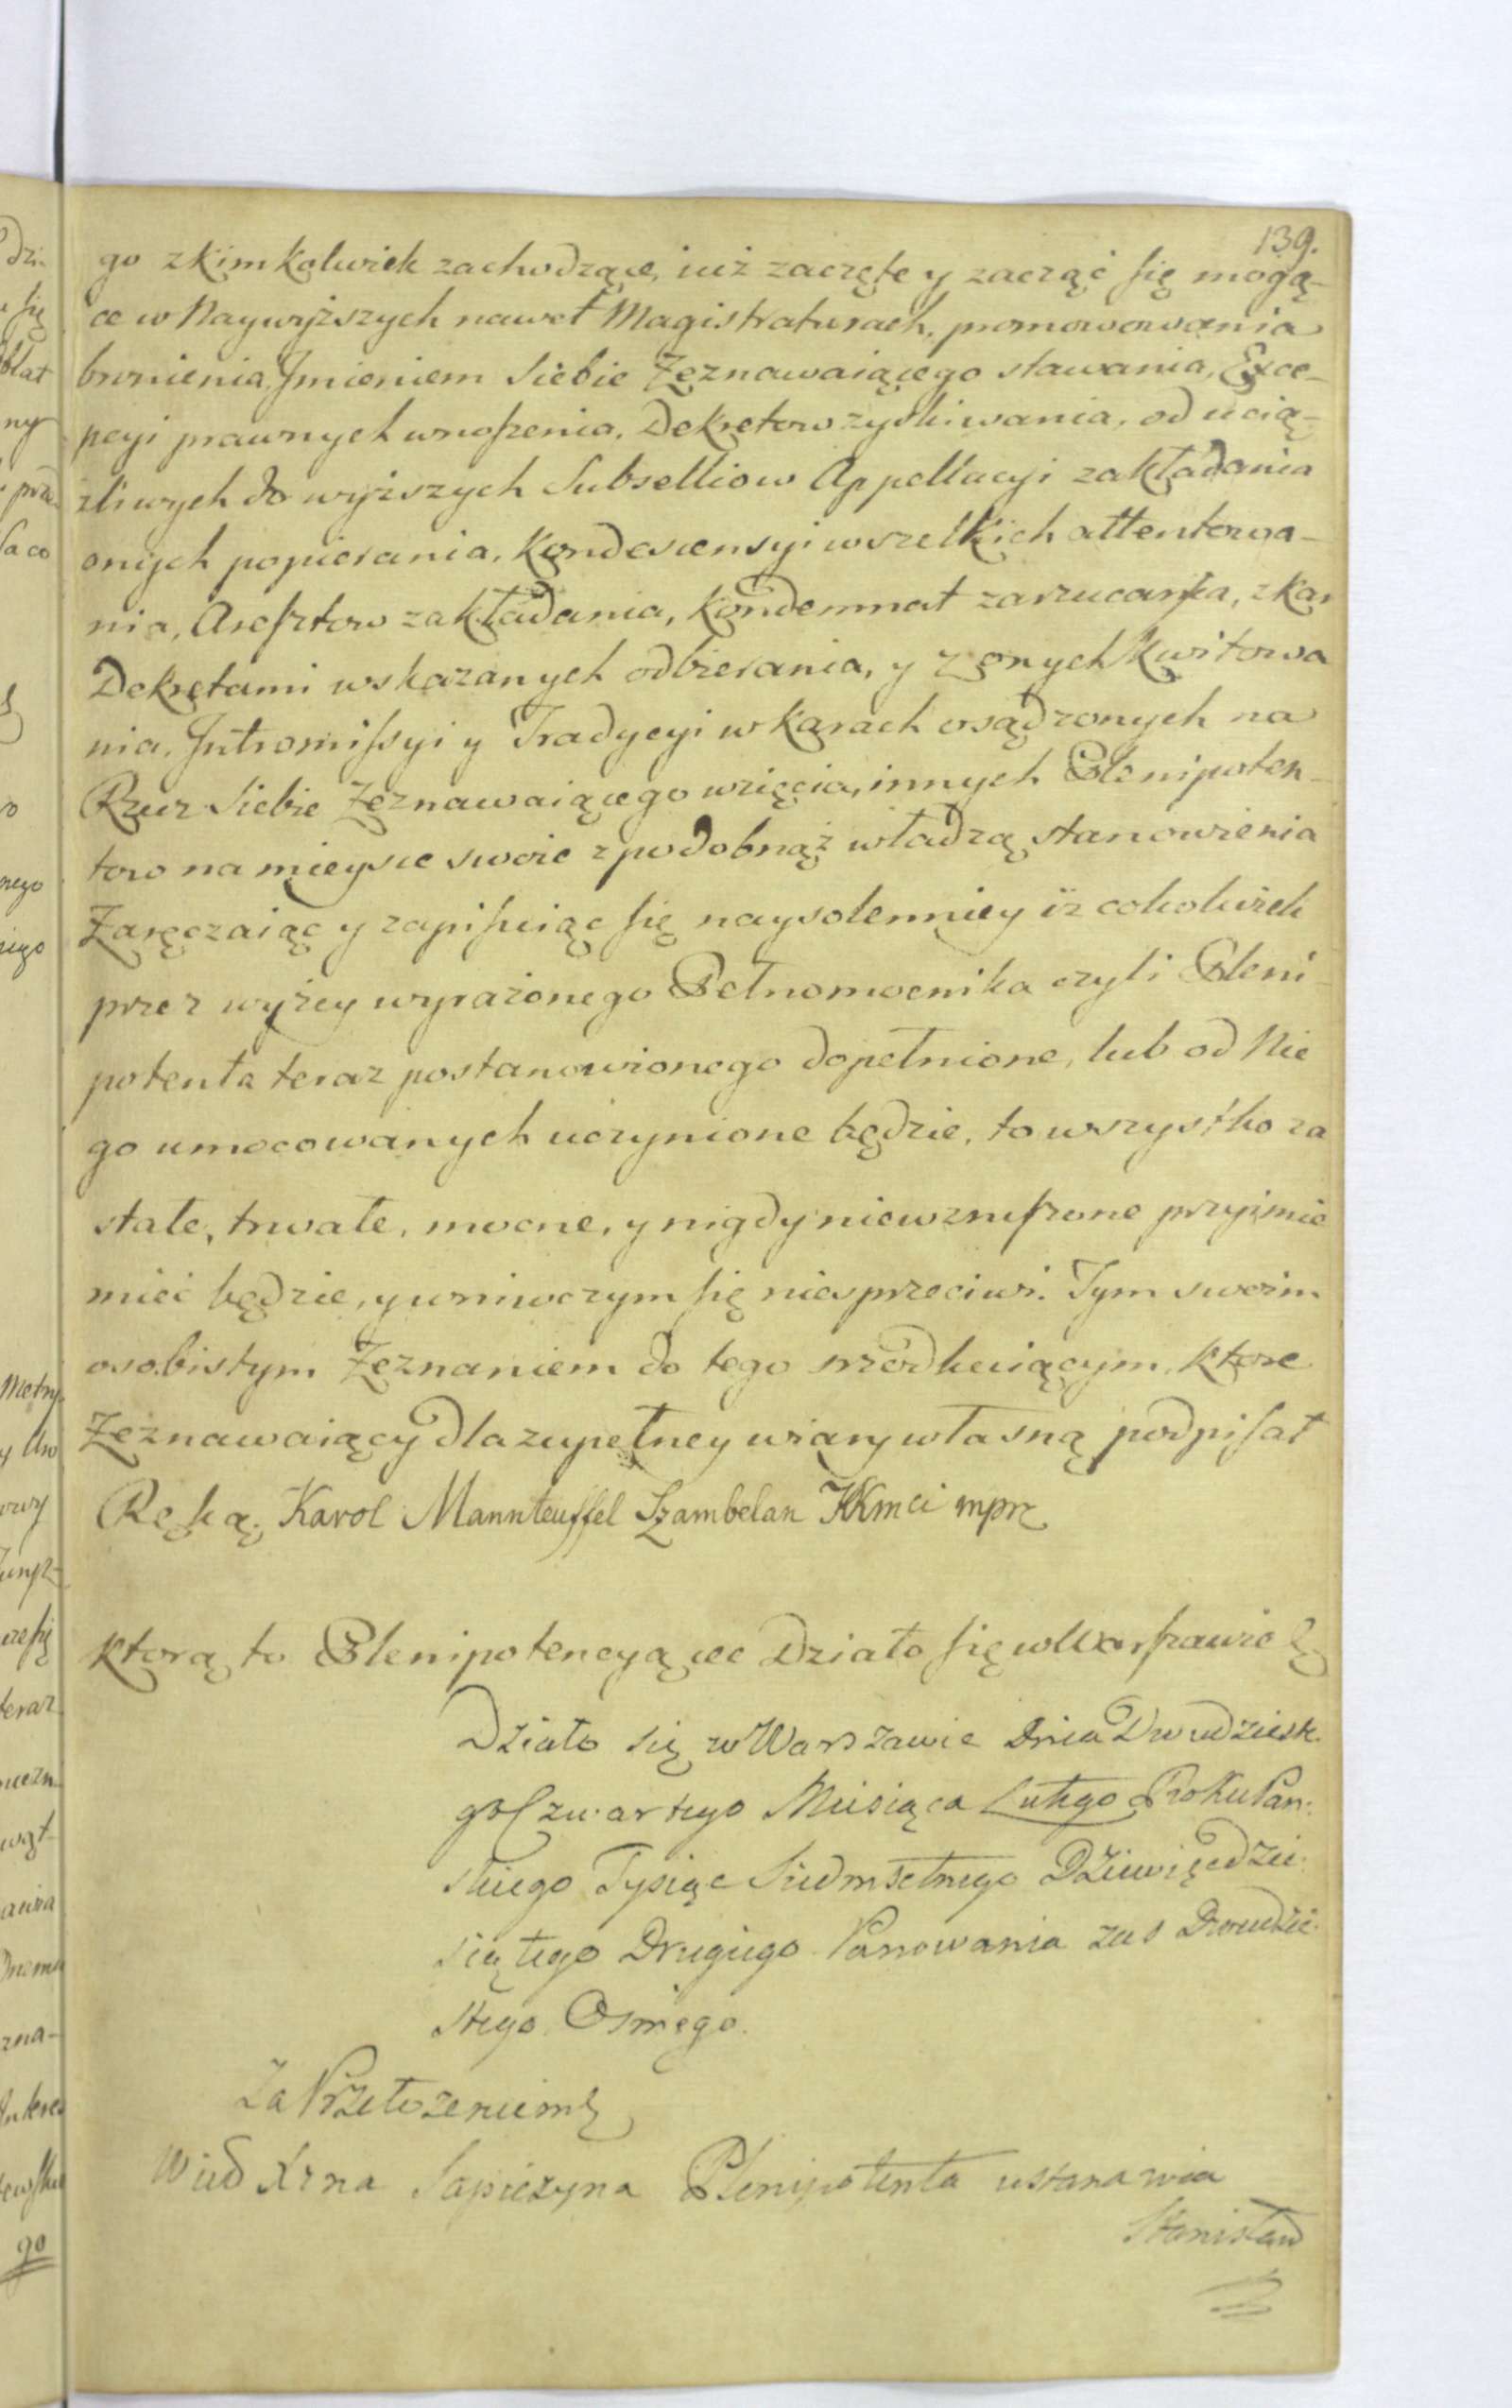 139.
go z kim kolwiek zachodzące, iuż zaczęte y zacząć się mogą-
ce w Naywyższych nawet Magistraturach, promowowania
bronienia, Jmieniem Siebie Zeznawaiącego stawania, Exce-
pcyi prawnych wnoszenia, Dekretow zyskiwania, od ucią-
żliwych do wyższych Subselliow Appellacyi zakładania
onych popierania, Kondescensyi wszelkich attentowa-
nia, Aresztow zakładania, Kondemnat zarzucania, z kar
Dekretami wskazanych odbierania, y z onych Kwitowa
nia, Intromissyi y Tradycyi w karach osądzonych na
Rzecz Siebie Zeznawaiącego wzięcia, innych Plenipoten-
tow na mieysce swoie z podobnąż władzą stanowienia
Zaręczaiąc y zapisuiąc się naysolenniey iż cokolwiek
przez wyżey wyrażonego Pełnomocnika czyli Pleni-
potenta teraz postanowionego dopełnione, lub od Nie
go umocowanych uczynione będzie, to wszystko za
stałe, trwałe, mocne, y nigdy niewzruszone przyimie
mieć będzie, y w niwczym się niesprzeciwi. Tym swoim
osobistym Zeznaniem do tego wzodkuiącym, ktore
Zeznawaiący dla zupełney wiary własną podpisał
Ręką. Karol Mannteuffel Szambelan JKmci mpr
Ktorą to Plenipotencyą etc Działo się w Warszawie
Działo się w Warszawie Dnia Dwudziesk.
go Czwartego Miesiąca Lutego Roku Pań:
skiego Tysiąc Siedmsetnego Dziewiędzie:
siątego Drugiego Panowania zas Dwudzie:
stego Osmego.
Za Przełożeniem
Wied Xzna Sapieżyna Plenipotenta ustanawia
Stanisław